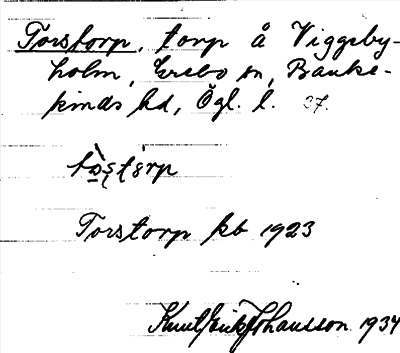 Torstorp, torp å Viggeby-
holm, Ekebo sn, Banke-
kinds hd, Ögl. l. 37.
Torstorp kb 1923
Knut Erik Johansson 1934